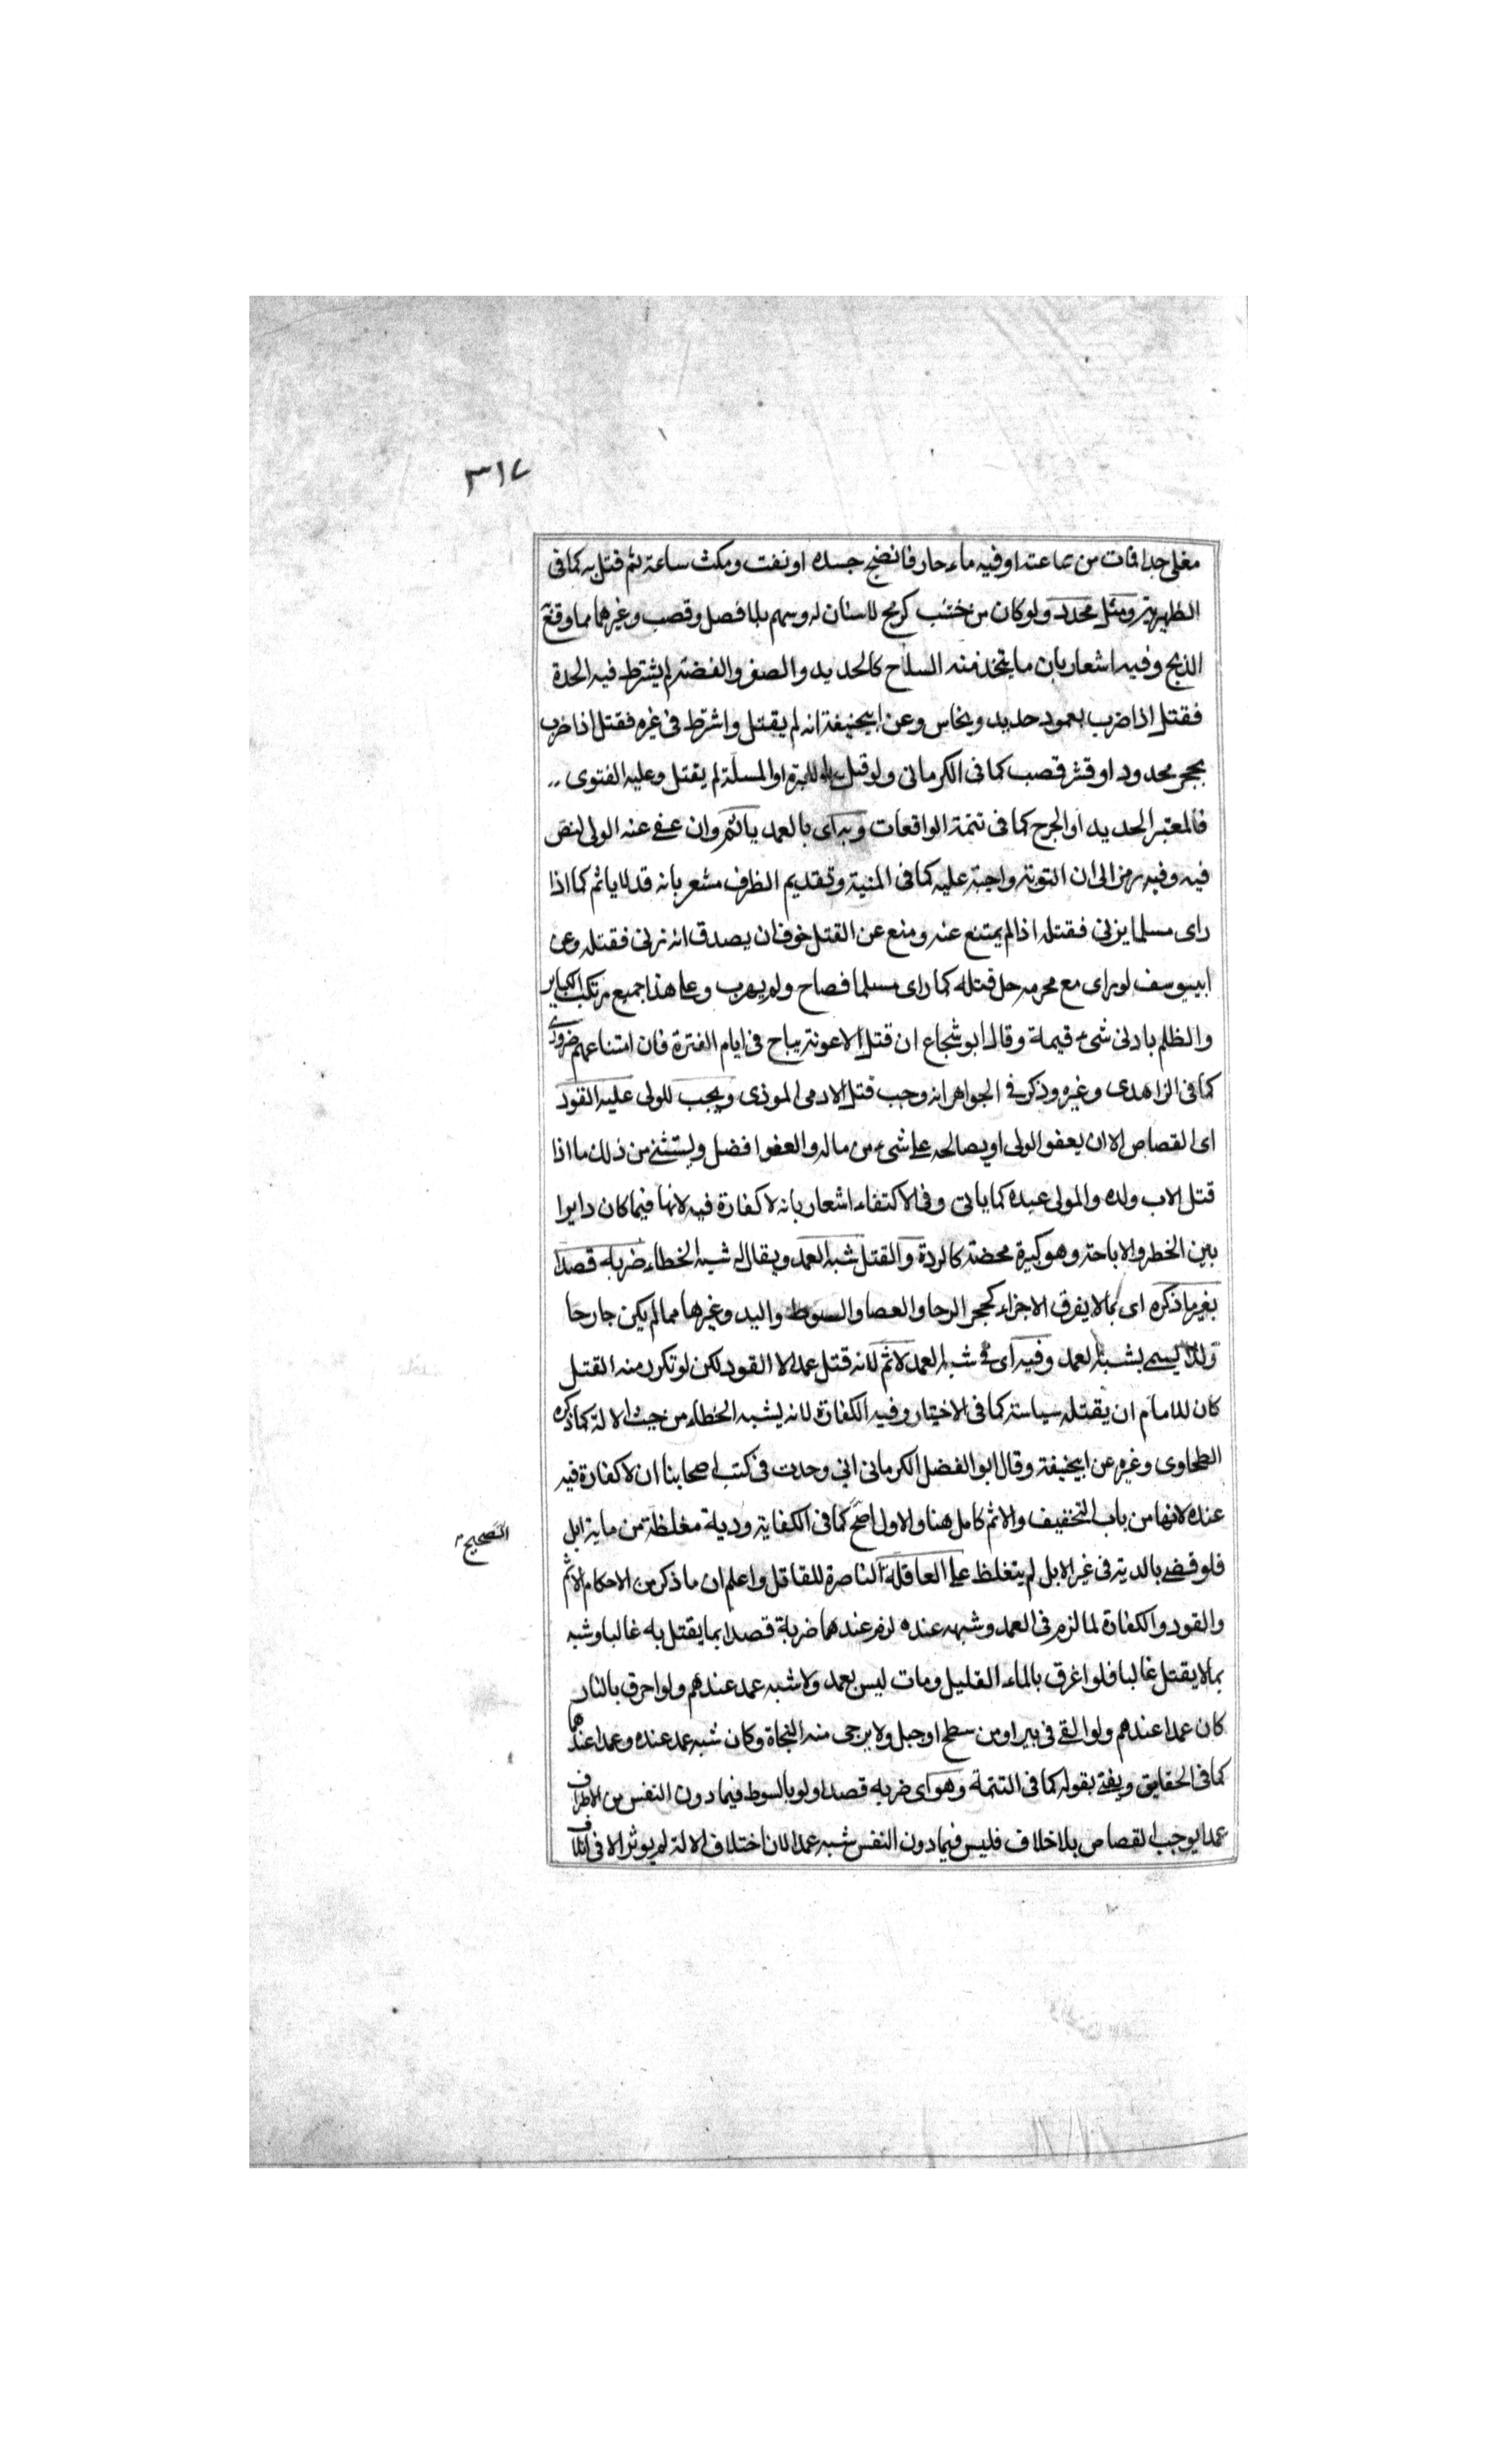 ٣١٧
مغلى جدا فمات من ساعته او فيه ماء حار فانضج جسده او نفت ومكث ساعة ثم قتل به كما فى
الظهيرية ومثل محدد ولو كان من خشب كرمح لا سنان له وسهم بلا فصل وقصب وغيرهما مما وقع
الذبح وفيه اشعار بان ما يتخذ منه السلاح كالحديد والصفر والفضة لم يشترط فيه الحدة
فقتل اذا ضرب بعمود حديد ونحاس وعن ابيحنيفة انه لم يقتل واشترط فى غيره فقتل اذا ضرب
بحجر محدود او قشر قصب كما فى الكرمانى ولو قتل بالابرة او المسلة لم يقتل وعليه الفتوى
فالمعتبر الحديد او الجرح كما فى تتمة الواقعات وبه اى بالعمد ياثم وان عفى عنه الولى لنص
فيه وفيه رمز الى ان التوبة واجبة عليه كما فى المنية وتقديم الظرف مشعر بانه قد لا ياثم كما اذا
راى مسلما يزنى فقتله اذا لم يمتنع عنه ومنع عن القتل خوف ان يصدق انه زنى فقتله وعن
ابييوسف لو راى مع محرمه حل قتله كما راى مسلما فصاح ولم يهرب وعلى هذا جميع مرتكب الكباير
والظلم بادنى شئ قيمة وقال ابو شجاع ان قتل الاعونة يباح فى ايام الفترة فان امتناعهم ضرورى
كما فى الزاهدى وغيره وذكر فى الجواهر انه وجب قتل الادمى الموذى ويجب للولى عليه القود
اى القصاص الا ان يعفو الولى او يصالحه على شئ من ماله والعفو افضل ويستثنى من ذلك ما اذا
قتل الاب ولده والمولى عبده كما ياتى وفى الاكتفاء اشعار بانه لا كفارة فيه لانها فيما كان دايرا
بين الخطر والاباحة وهو كبيرة محضة كالردة والقتل شبه العمد ويقال له شبه الخطاء ضربه قصدا
بغير ما ذكره اى بما لا يفرق الاجزاء كحجر الرحا والعصا والسوط واليد وغيرها مما لم يكن جارحا
ولذا يسمى بشبه العمد وفيه اى فى شبه العمد الاثم لانه قتل عمدا لا القود لكن لو تكرر منه القتل
كان للامام ان يقتله سياسة كما فى الاختيار وفيه الكفارة لانه يشبه الخطاء من حيث الالة كما ذكره
الطحاوى وغيره عن ابيحنيفة وقال ابو الفضل الكرمانى انى وجدت فى كتب اصحابنا ان لا كفارة فيه
عنده لانها من باب التخفيف والاثم كامل هنا والاول اصح كما فى الكفاية ودية مغلظة من ماية ابل
الصحيح
فلو قضى بالدية فى غير الابل لم يتغلظ على العاقلة الناصرة للقاتل واعلم ان ما ذكر من الاحكام الاثم
والقود والكفارة لما لزم فى العمد وشبهه عنده لزم عندهما ضربة قصدا بما يقتل به غالبا وشبه
بما لا يقتل غالبا فلو اغرق بالماء القليل ومات ليس بعمد ولا شبه عمد عندهم ولو احرق بالنار
كان عمدا عندهم ولو القى فى بير او من سطح او جبل ولا يرجى منه النجاة وكان شبه عمد عنده وعمدا عندهما
كما فى الحقايق ويفتى بقوله كما فى التتمة وهو اى ضربه قصدا ولو بالسوط فيما دون النفس من الاطراف
عمدا يوجب القصاص بلا خلاف فليس فيما دون النفس شبه عمد لان اختلاف الالة لم يوثر الا فى اتلاف